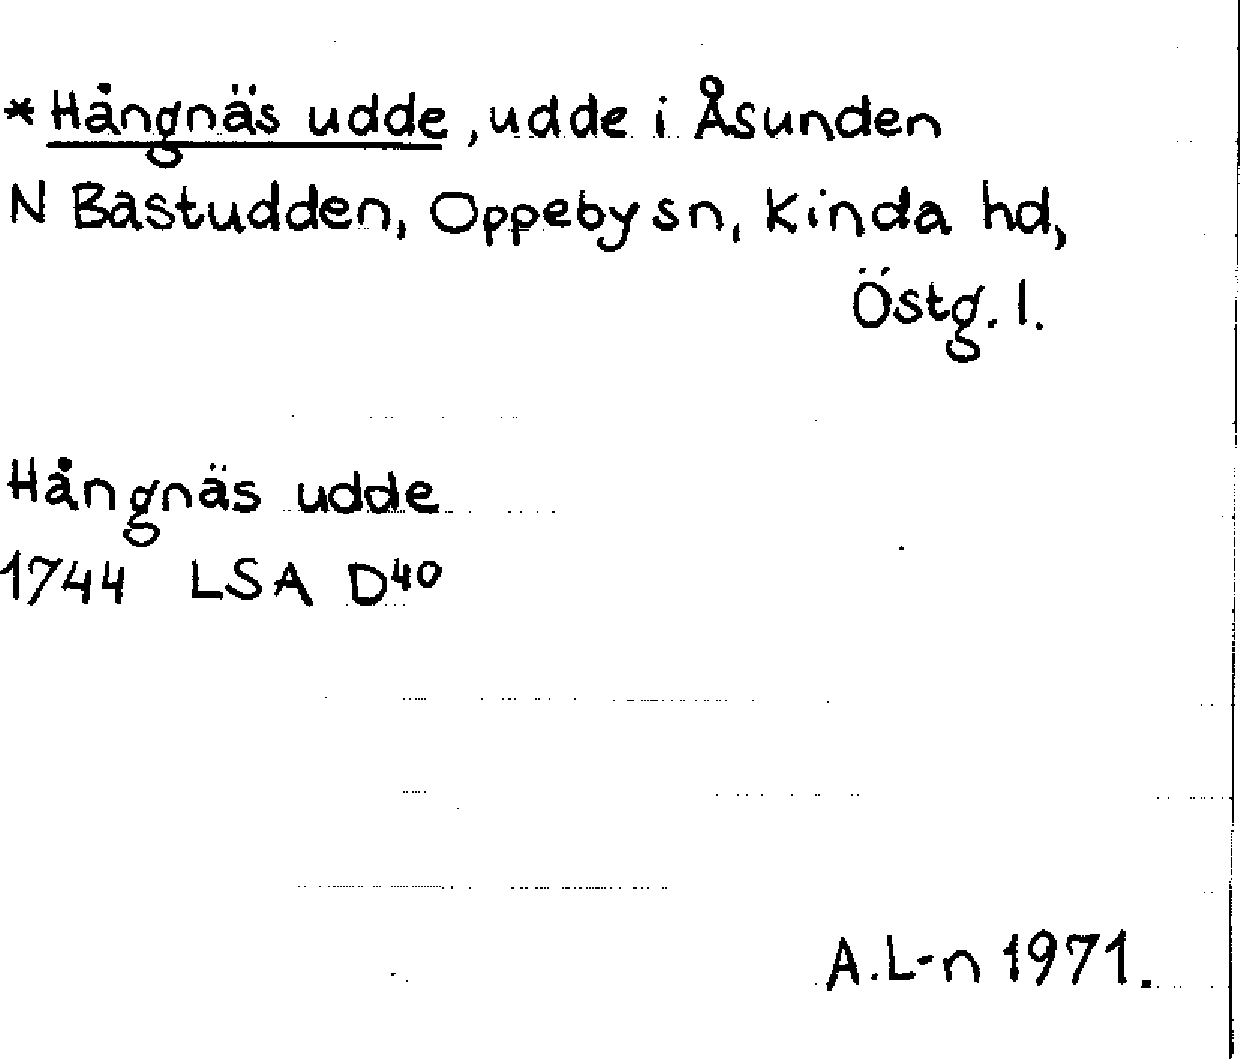 * Hångnäs udde, udde i Åsunden
N Bastudden, Oppeby sn, Kinda hd,
Östg. l.
Hångnäs udde
1744 LSA D40
A.L-n 1971.